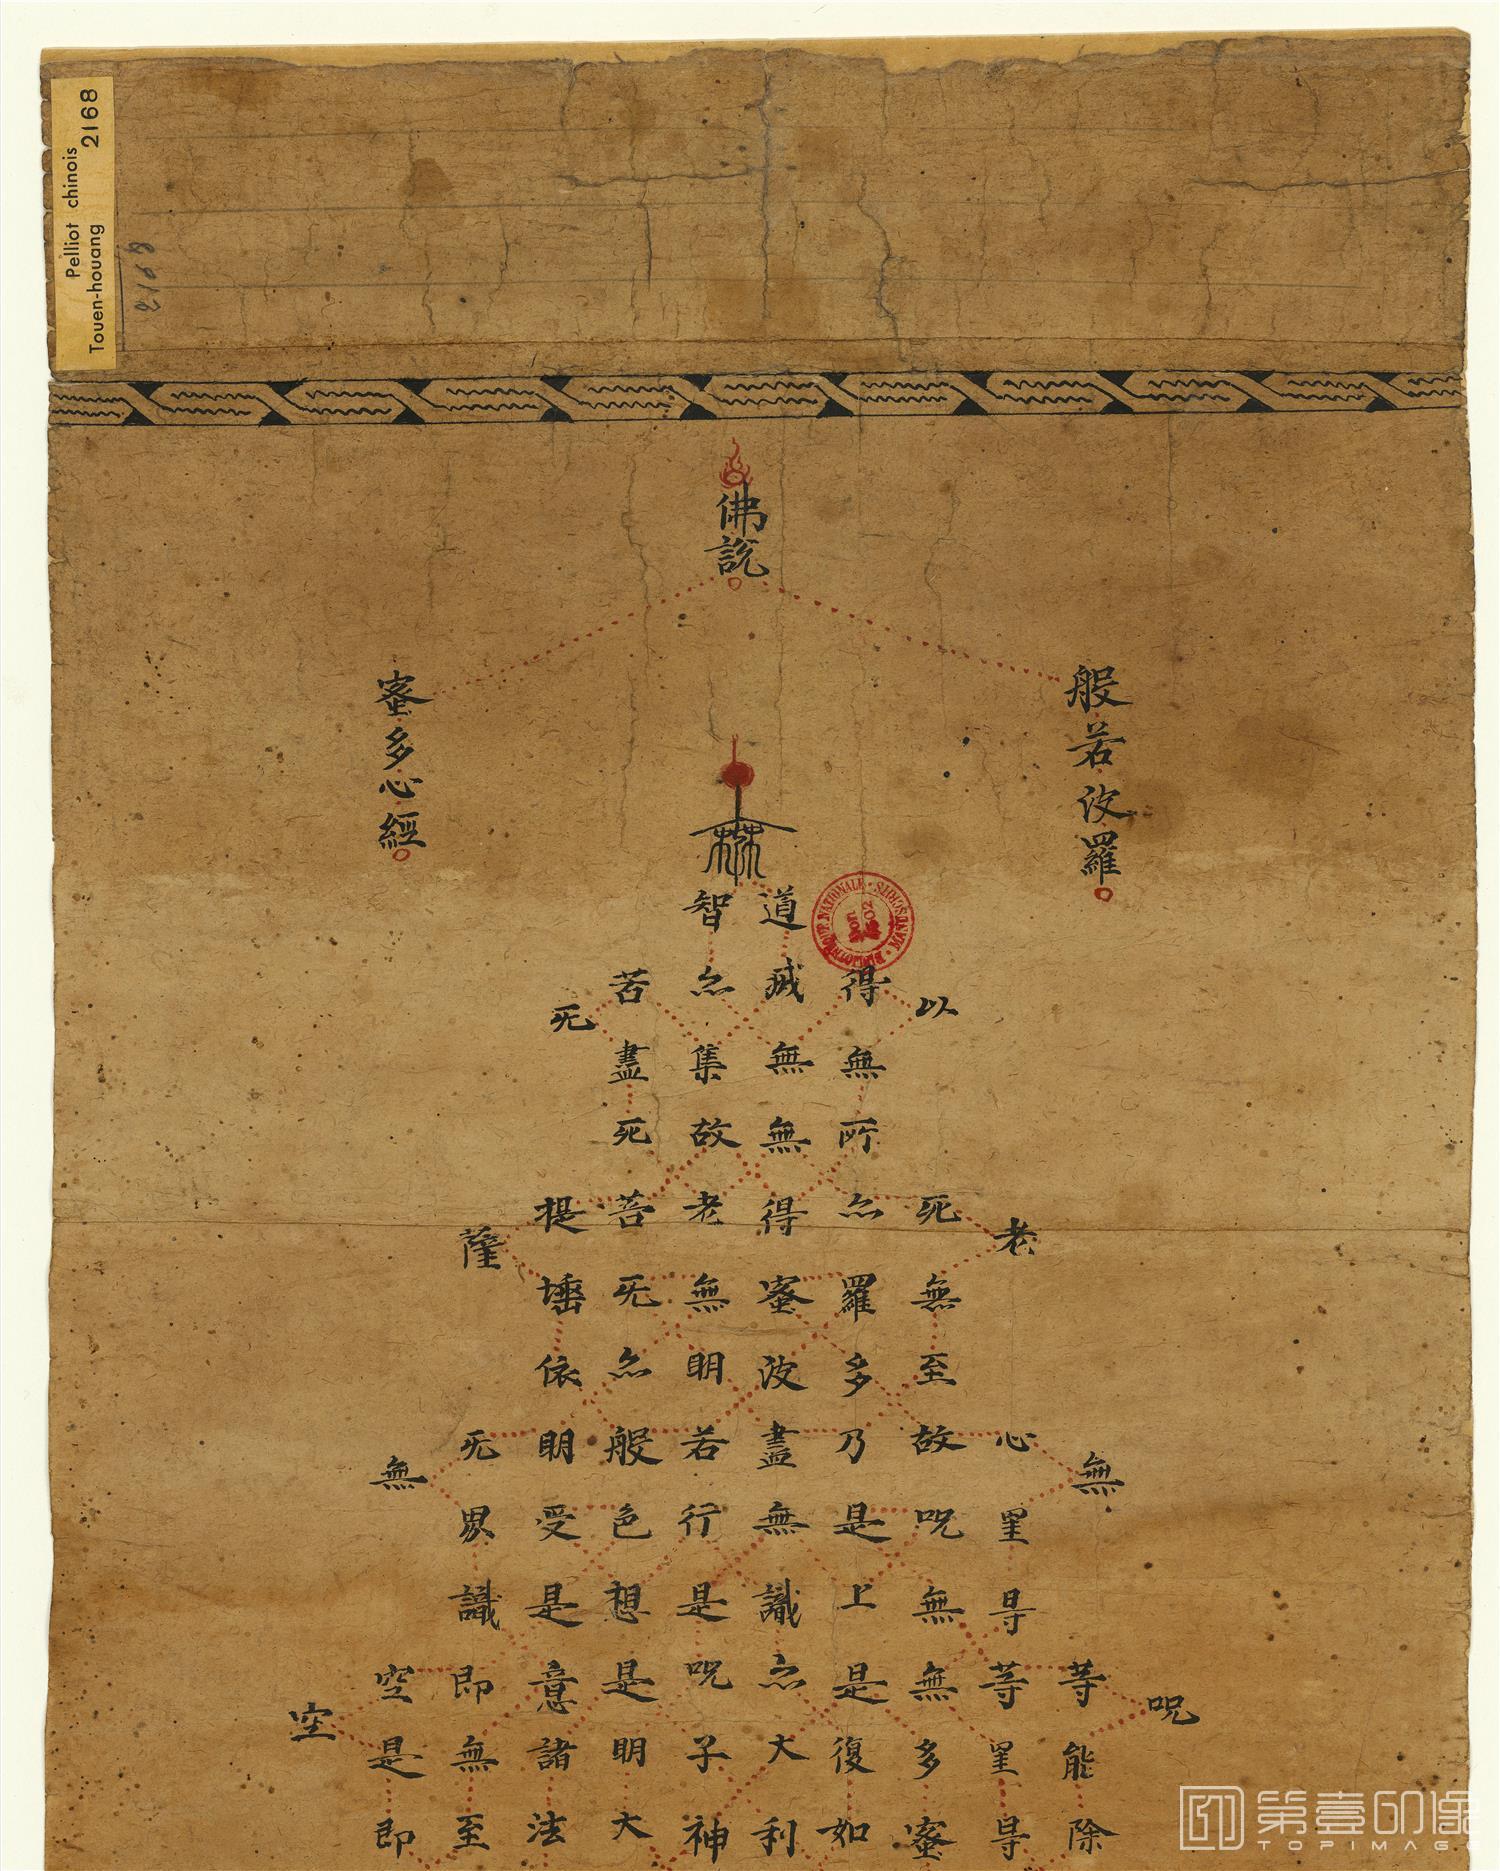 Pelliot chinois
Touen-houang 2168
2168
佛說
般若波羅
蜜多心經
BIBLIOTHÈQUE NATIONALE MANUSCRITS
呪
無等能除
老心罣㝵等罣㝵
以死無至故呪無無多蜜
得無所亦羅多乃是上是復如
道滅無無得蜜波盡無識亦大利
智亦集故老無明若行是呪子神
苦盡死菩无亦般色想是明大
无提埵依明受是意諸法
薩无界識即無至
無空是即
空
第壹印像
TOPIMAGE